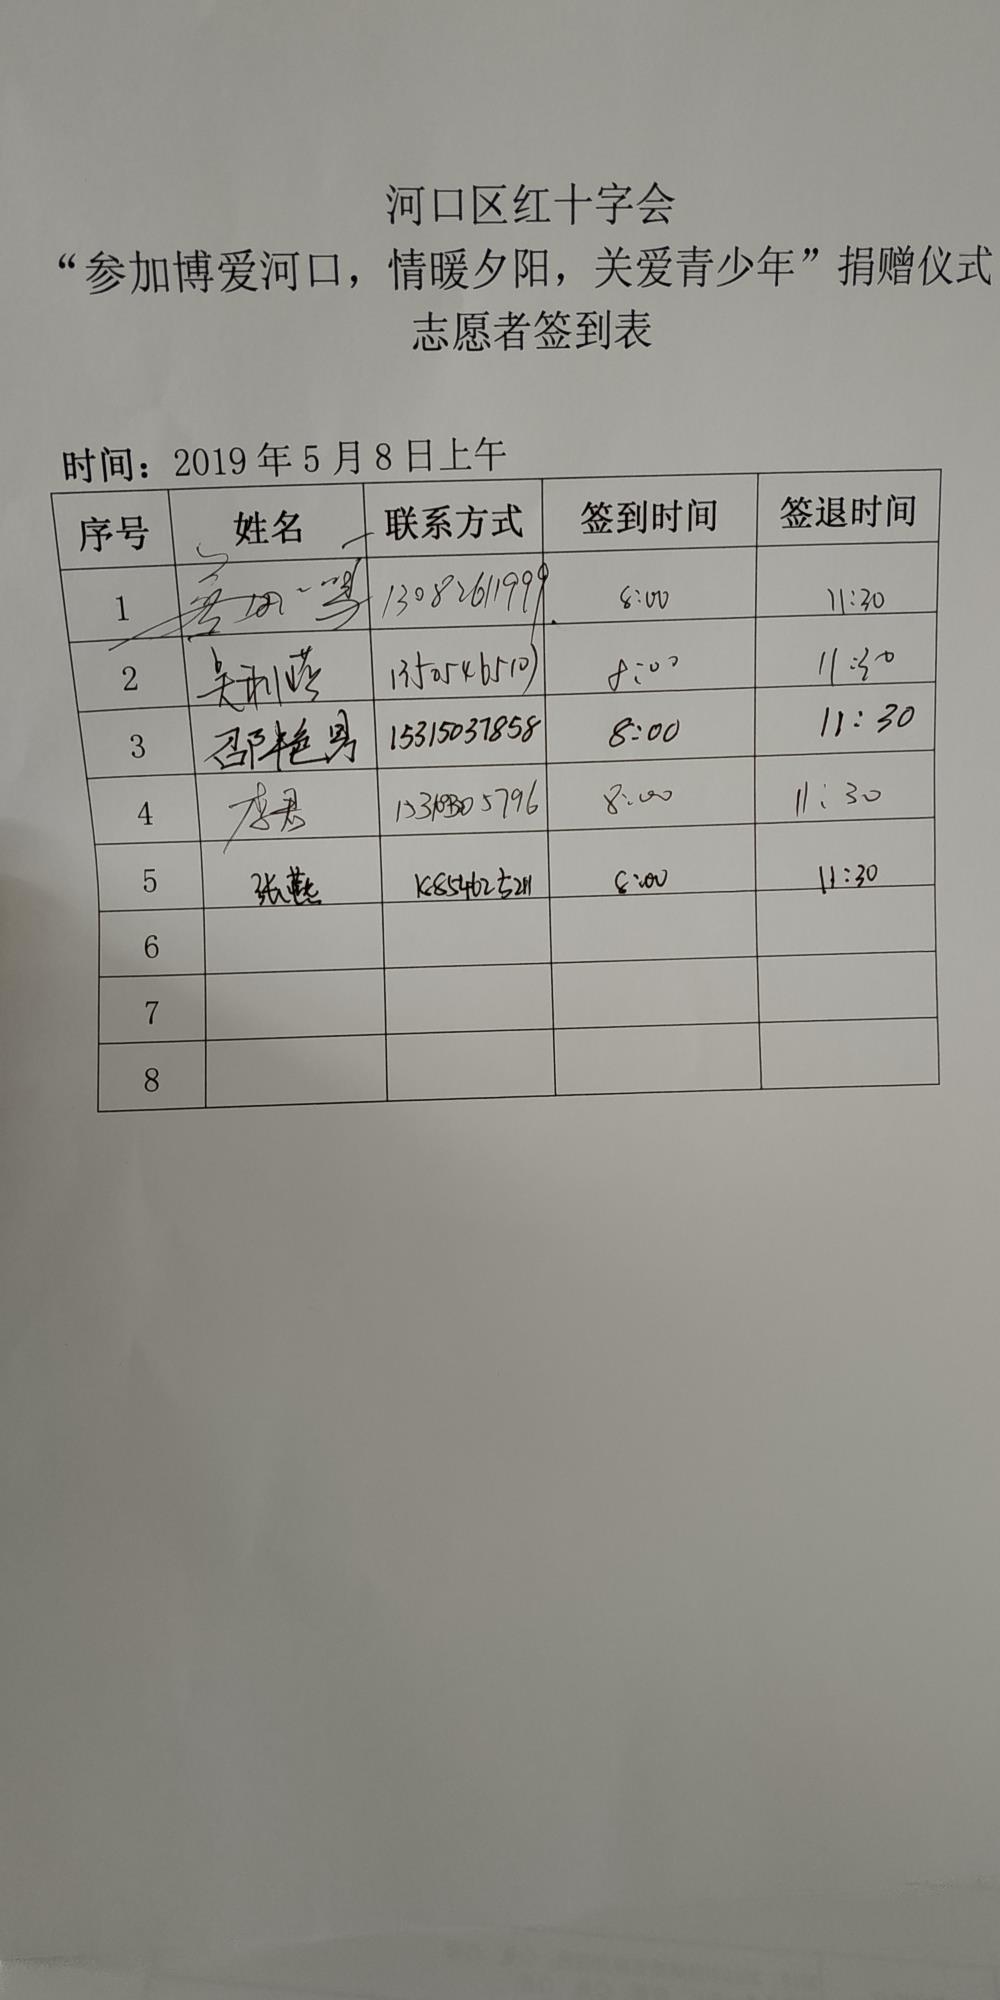 河口区红十字会
“参加博爱河口，情暖夕阳，关爱青少年”捐赠仪式
志愿者签到表
时间：2019 年 5 月 8 日上午
序号 姓名 联系方式 签到时间 签退时间
1 13082611999 8:00 11:30
2 吴利 8:00 11:30
3 邵艳男 15315037858 8:00 11:30
4 李君 8:00 11:30
5 张燕 8:00 11:30
6
7
8